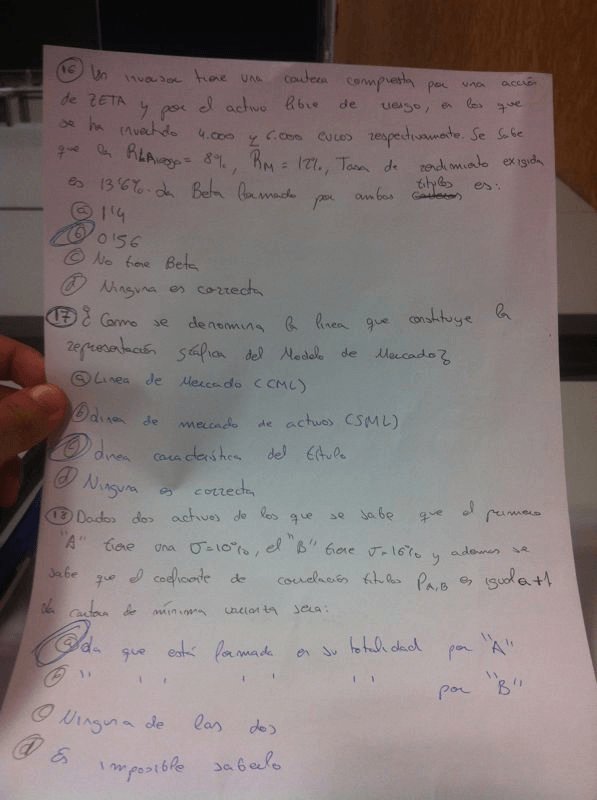 16 Un inversor tiene una cartera compuesta por una acción
de ZETA y por el activo libre de riesgo, en los que
se ha invertido 4.000 y 6.000 euros respectivamente. Se sabe
que la RLRiesgo = 8%, RM = 12%, Tasa de rendimiento exigida
es 13'6%. La Beta formado por ambos títulos es:
a 1'4
b 0'56
c No tiene Beta
d Ninguna es correcta
17 ¿Como se denomina la linea que constituye la
representación gráfica del Modelo de Mercado?
a Linea de Mercado (CML)
b Linea de mercado de activos (SML)
c Linea característica del título
d Ninguna es correcta
18 Dados dos activos de los que se sabe que el primero
"A" tiene una σ=10%, el "B" tiene σ=16% y ademas se
sabe que el coeficiente de correlación titulos PA,B es igual a +1
La cartera de mínima varianza sera:
a La que está formada en su totalidad por "A"
b " " " " por "B"
c Ninguna de las dos
d Es imposible saberlo